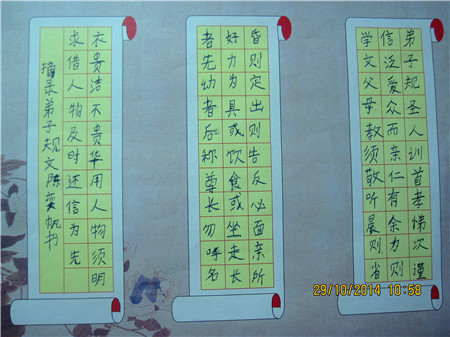 弟子规圣人训首孝悌次谨
信泛爱众而亲仁有余力则
学文父母教须敬听晨则省
昏则定出则告反必面亲所
好力为具或饮食或坐走长
者先幼者后称尊长勿呼名
衣贵洁不贵华用人物须明
求借人物及时还信为先
摘录弟子规文陈奕帆书
29/10/2014 10:58